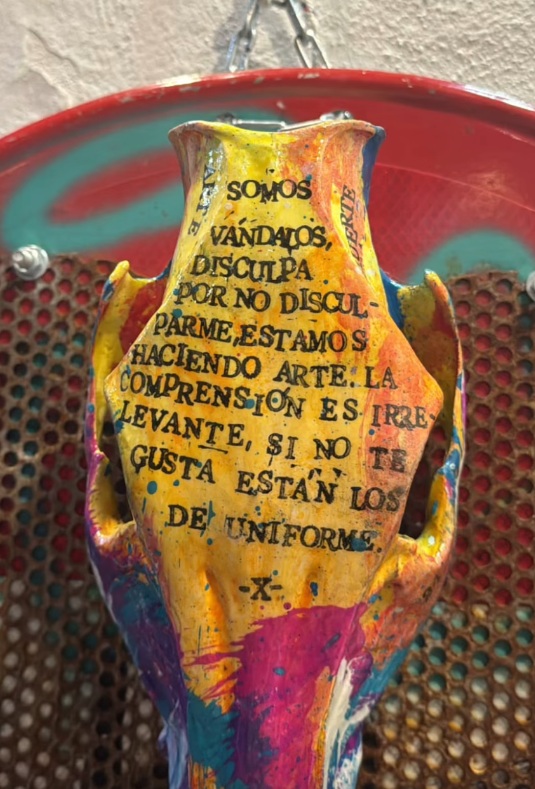 SOMOS
VANDALOS,
DISCULPA
POR NO DISCUL-
PARME,ESTAMOS
HACIENDO ARTE. LA
COMPRENSIÓN ES IRRE-
LEVANTE, SI NO TE
GUSTA ESTAN LOS
DE UNIFORME.
-X-